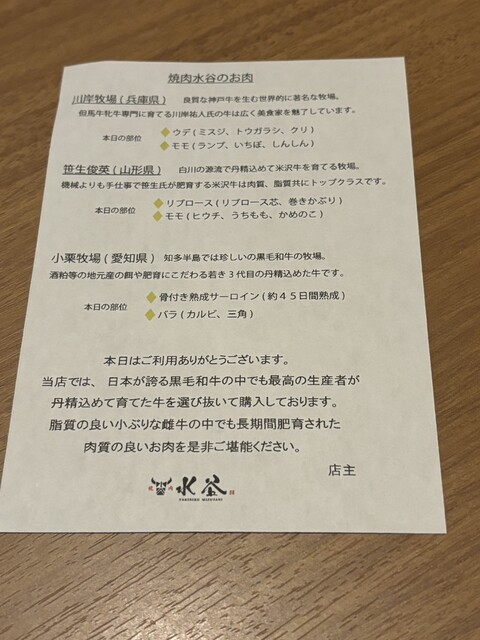 焼肉水谷のお肉
川岸牧場(兵庫県) 良質な神戸牛を生む世界的に著名な牧場。
但馬牛牝牛専門に育てる川岸祐人氏の牛は広く美食家を魅了しています。
本日の部位 ◆ウデ(ミスジ、トウガラシ、クリ)
◆モモ(ランプ、いちぼ、しんしん)
笹生俊英(山形県) 白川の源流で丹精込めて米沢牛を育てる牧場。
機械よりも手仕事で笹生氏が肥育する米沢牛は肉質、脂質共にトップクラスです。
本日の部位 ◆リブロース(リブロース芯、巻きかぶり)
◆モモ(ヒウチ、うちもも、かめのこ)
小栗牧場(愛知県) 知多半島では珍しいの黒毛和牛の牧場。
酒粕等の地元産の餌や肥育にこだわる若き3代目の丹精込めた牛です。
本日の部位 ◆骨付き熟成サーロイン(約45日間熟成)
◆バラ(カルビ、三角)
本日はご利用ありがとうございます。
当店では、日本が誇る黒毛和牛の中でも最高の生産者が
丹精込めて育てた牛を選び抜いて購入しております。
脂質の良い小ぶりな雌牛の中でも長期間肥育された
肉質の良いお肉を是非ご堪能ください。
店主
焼肉 水谷
YAKINIKU MIZUTANI